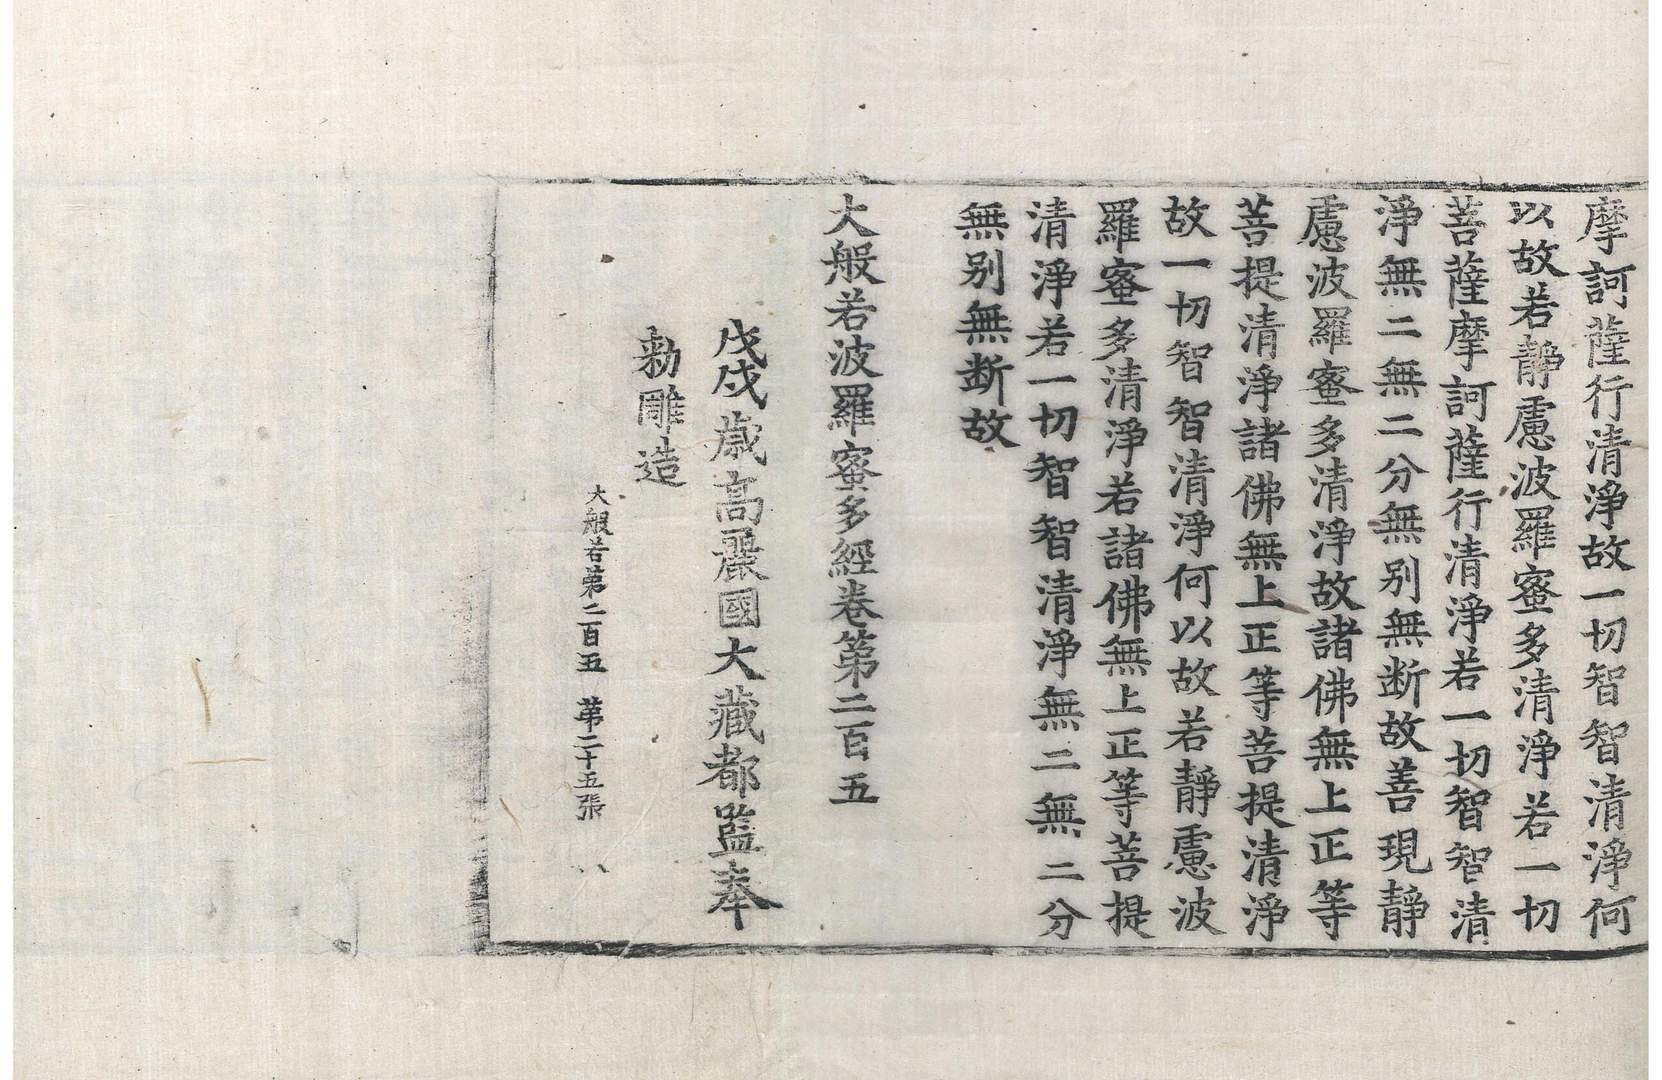 摩訶薩行清淨故一切智智清淨何
以故若靜慮波羅蜜多清淨若一切
菩薩摩訶薩行清淨若一切智智清
淨無二無二分無別無断故善現靜
慮波羅蜜多清淨故諸佛無上正等
菩提清淨諸佛無上正等菩提清淨
故一切智智清淨何以故若靜慮波
羅蜜多清淨若諸佛無上正等菩提
清淨若一切智智清淨無二無二分
無別無断故
大般若波羅蜜多經卷第二百五
戊戌歳高麗國大藏都監奉
勅雕造
大般若第二百五 第二十五張